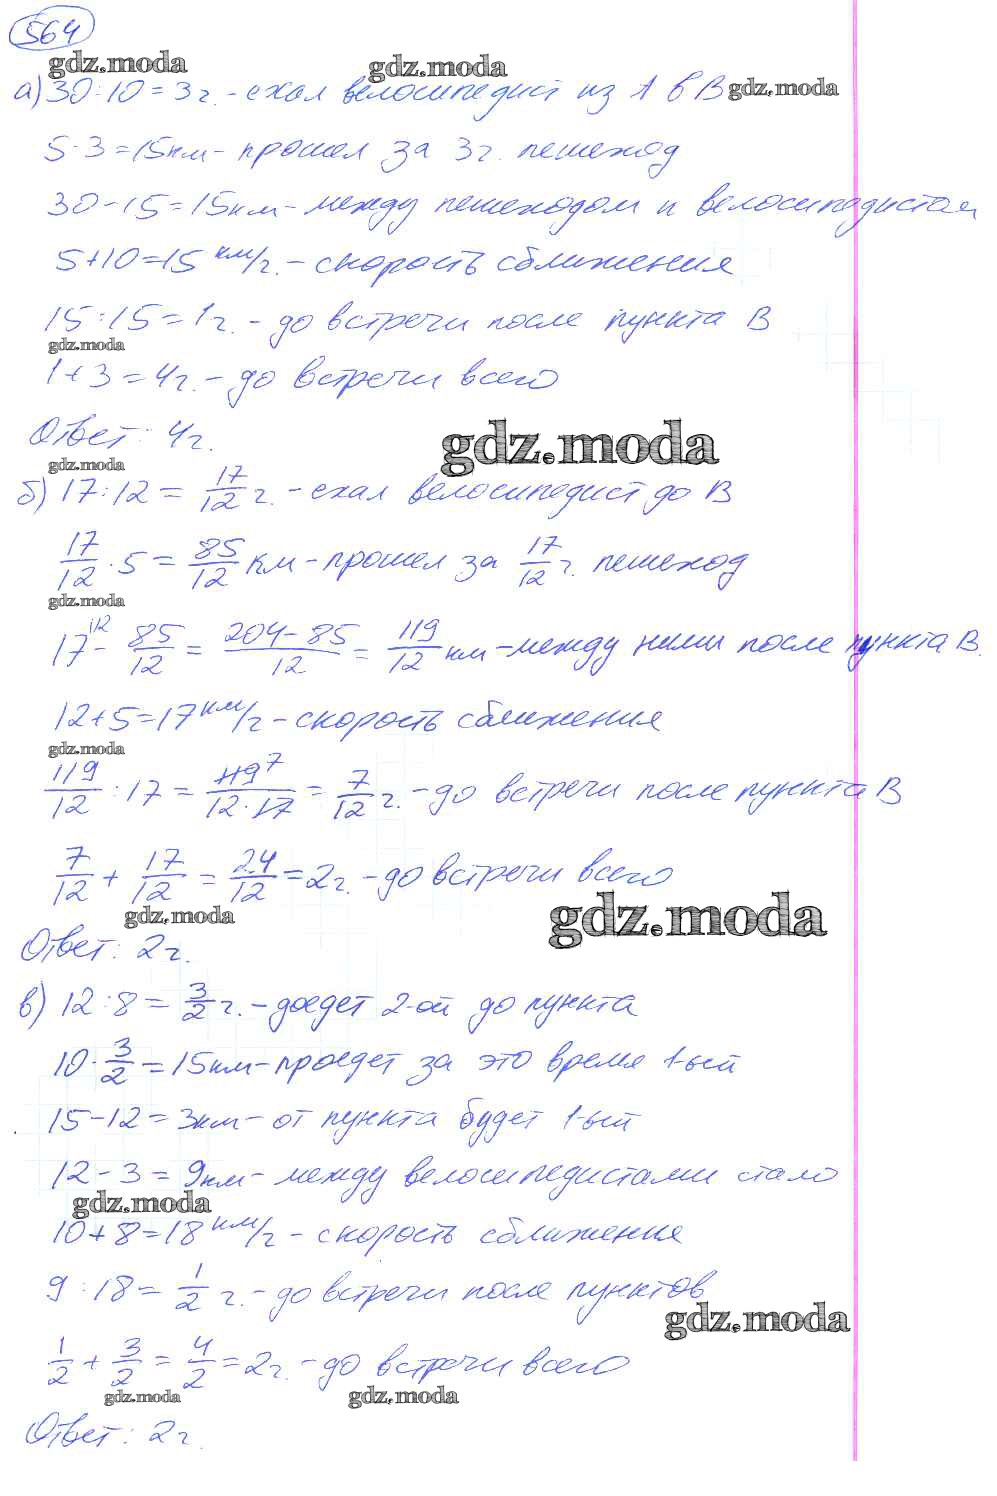 564
gdz.moda gdz.moda
а) 30:10=3ч.-ехал велосипедист из А в В gdz.moda
5·3=15км-прошел за 3ч. пешеход
30-15=15км-между пешеходом и велосипедистом
5+10=15 км/ч.-скорость сближения
15:15=1ч.-до встречи после пункта В
gdz.moda
1+3=4ч.-до встречи всего
Ответ: 4ч. gdz.moda
gdz.moda
б) 17:12=17/12 ч.-ехал велосипедист до В
17/12·5=85/12 км-прошел за 17/12 ч. пешеход
gdz.moda
17^12-85/12=(204-85)/12=119/12 км-между ними после пункта В.
12+5=17 км/ч-скорость сближения
gdz.moda
119/12:17=119^7/(12·17)=7/12 ч.-до встречи после пункта В
7/12+17/12=24/12=2ч.-до встречи всего
gdz.moda gdz.moda
Ответ: 2ч.
в) 12:8=3/2 ч.-доедет 2-ой до пункта
10·3/2=15км-проедет за это время 1-ый
15-12=3км-от пункта будет 1-ый
12-3=9км-между велосипедистами стало
gdz.moda
10+8=18 км/ч-скорость сближения
9:18=1/2 ч.-до встречи после пунктов
gdz.moda
1/2+3/2=4/2=2ч.-до встречи всего
gdz.moda gdz.moda
Ответ: 2ч.